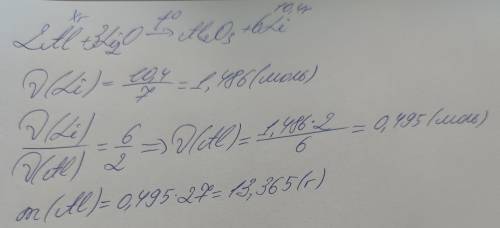 xг 10,4г
2Al + 3Li₂O →t° Al₂O₃ + 6Li
ν(Li) = 10,4/7 = 1,486 (моль)
ν(Li)/ν(Al) = 6/2 ⇒ ν(Al) = 1,486·2/6 = 0,495 (моль)
m(Al) = 0,495·27 = 13,365 (г)